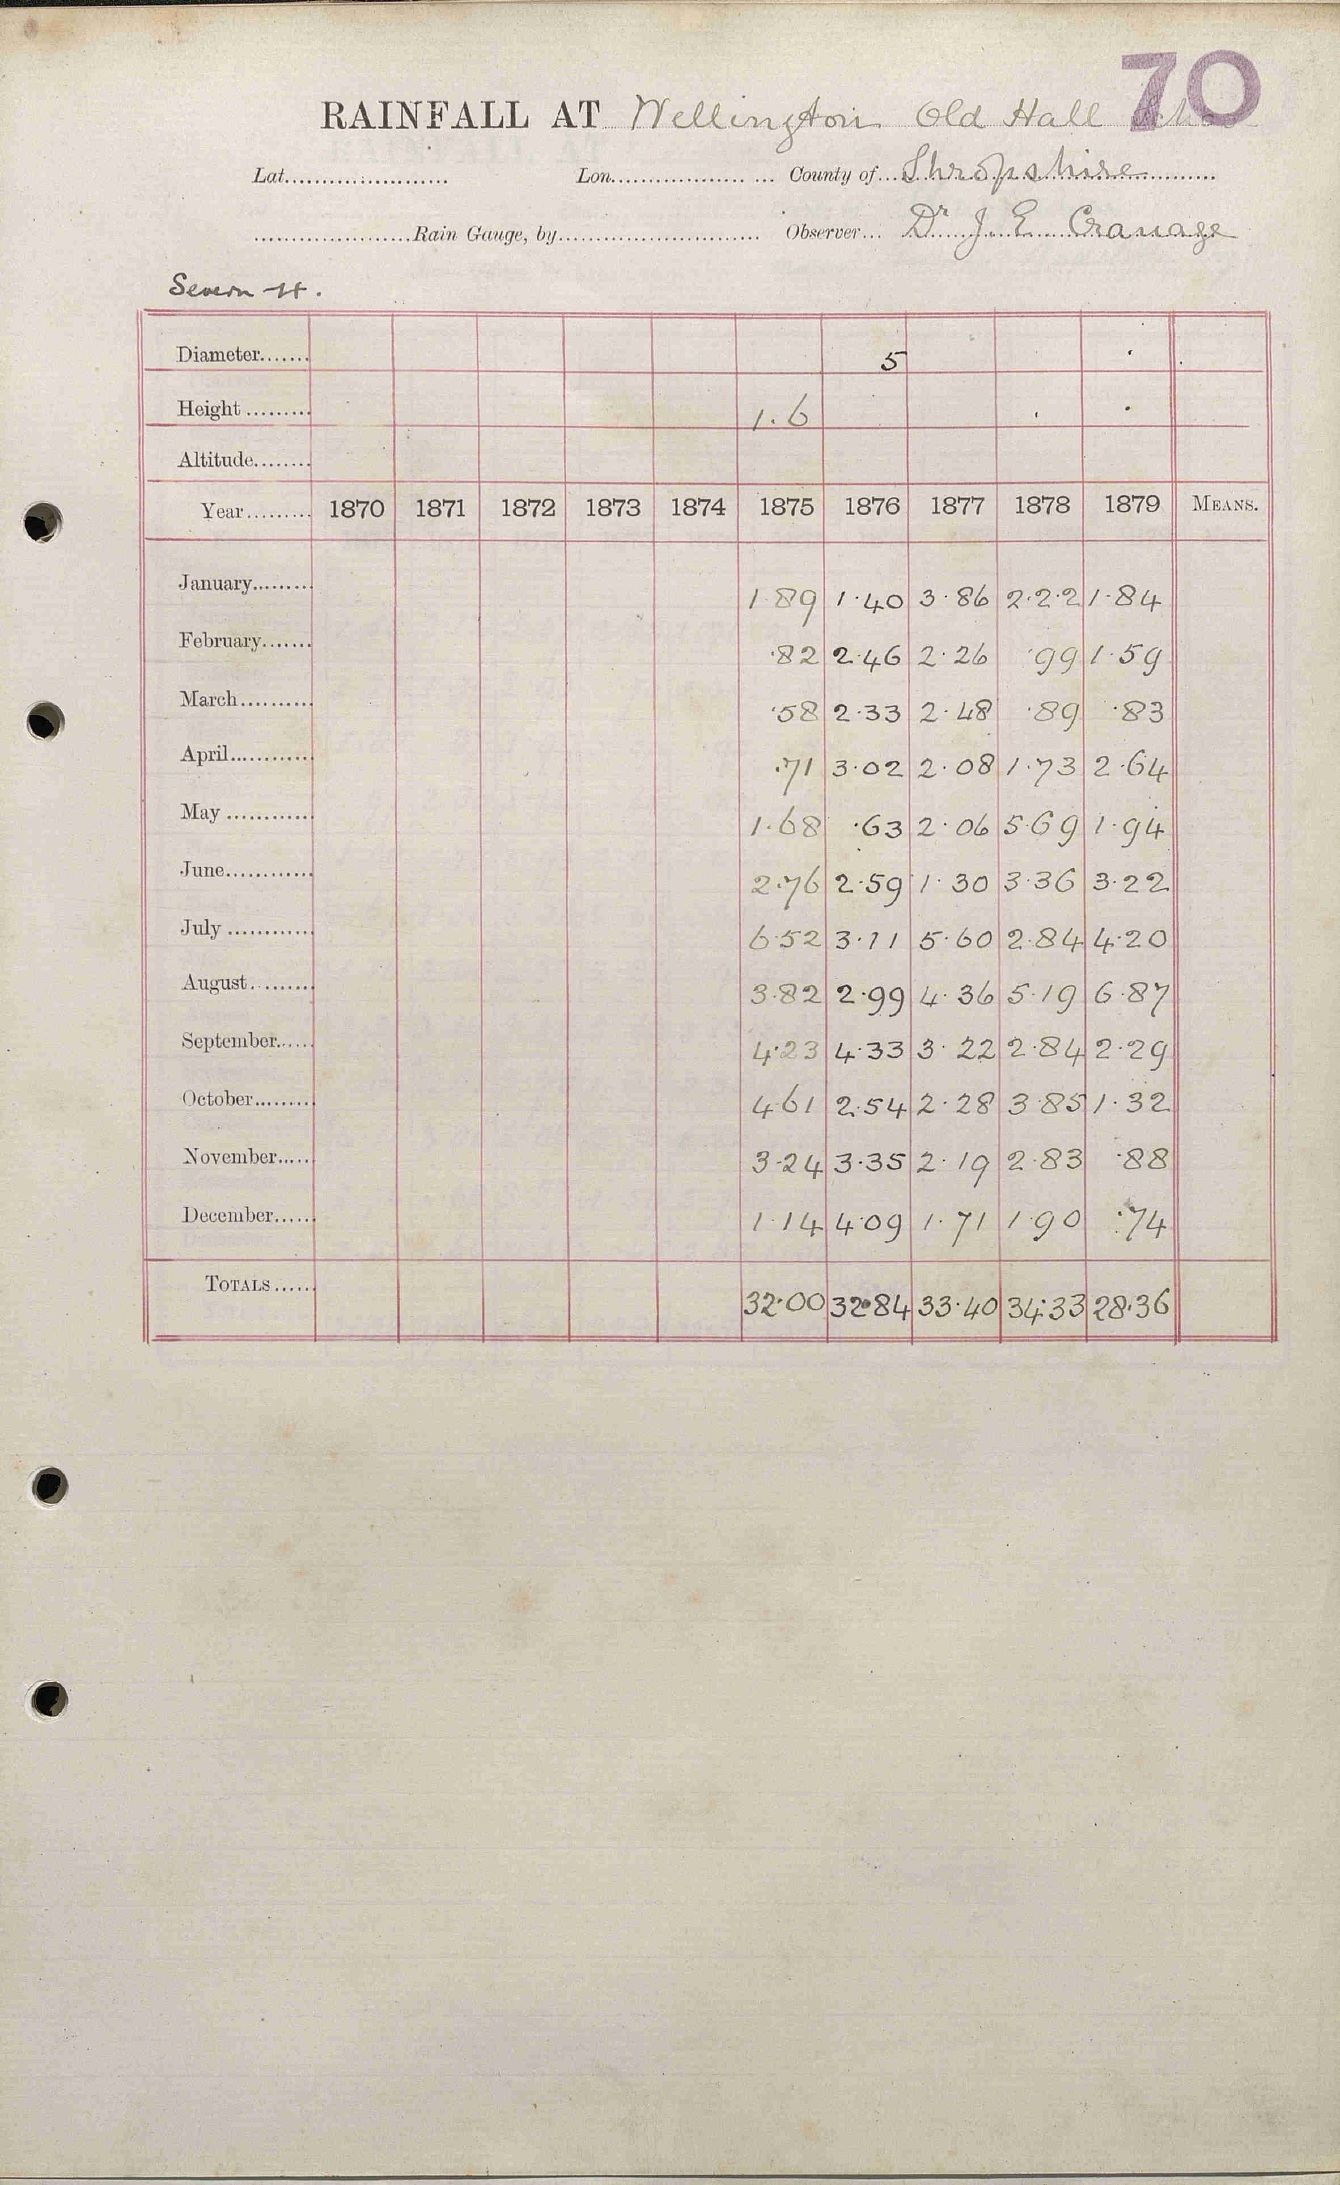 70
RAINFALL AT Wellington Old Hall School
Lat. Lon. County of Shropshire
Rain Gauge, by Observer Dr J. E. Cranage
Severn H.
Diameter 5
Height 1.6
Altitude
Year 1870 1871 1872 1873 1874 1875 1876 1877 1878 1879 MEANS.
January 1.89 1.40 3.86 2.22 1.84
February .82 2.46 2.26 .99 1.59
March .58 2.33 2.48 .89 .83
April .71 3.02 2.08 1.73 2.64
May 1.68 .63 2.06 5.69 1.94
June 2.76 2.59 1.30 3.36 3.22
July 6.52 3.11 5.60 2.84 4.20
August 3.82 2.99 4.36 5.19 6.87
September 4.23 4.33 3.22 2.84 2.29
October 4.61 2.54 2.28 3.85 1.32
November 3.24 3.35 2.19 2.83 .88
December 1.14 4.09 1.71 1.90 .74
TOTALS 32.00 32.84 33.40 34.33 28.36